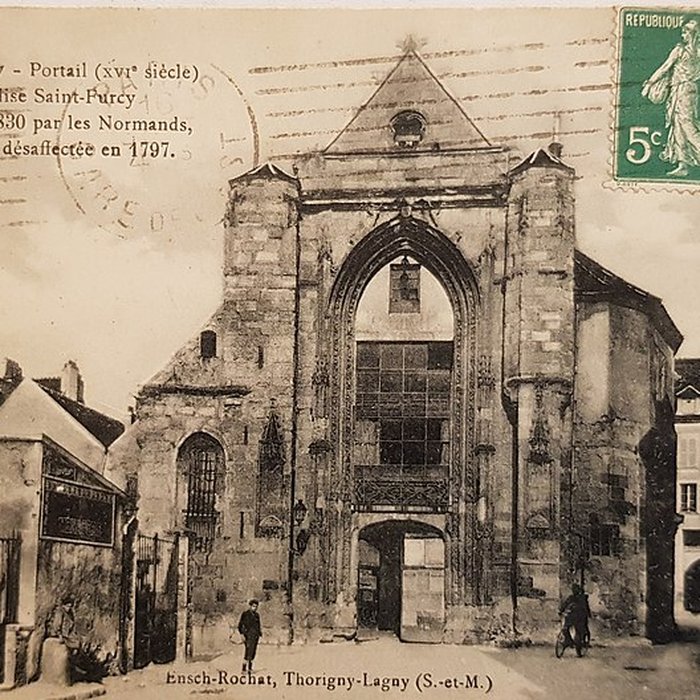 - Portail (XVIᵉ siècle)
lise Saint-Furcy
830 par les Normands,
désaffectée en 1797.
REPUBLIQUE
5c
Ensch-Rochat, Thorigny-Lagny (S.-et-M.)